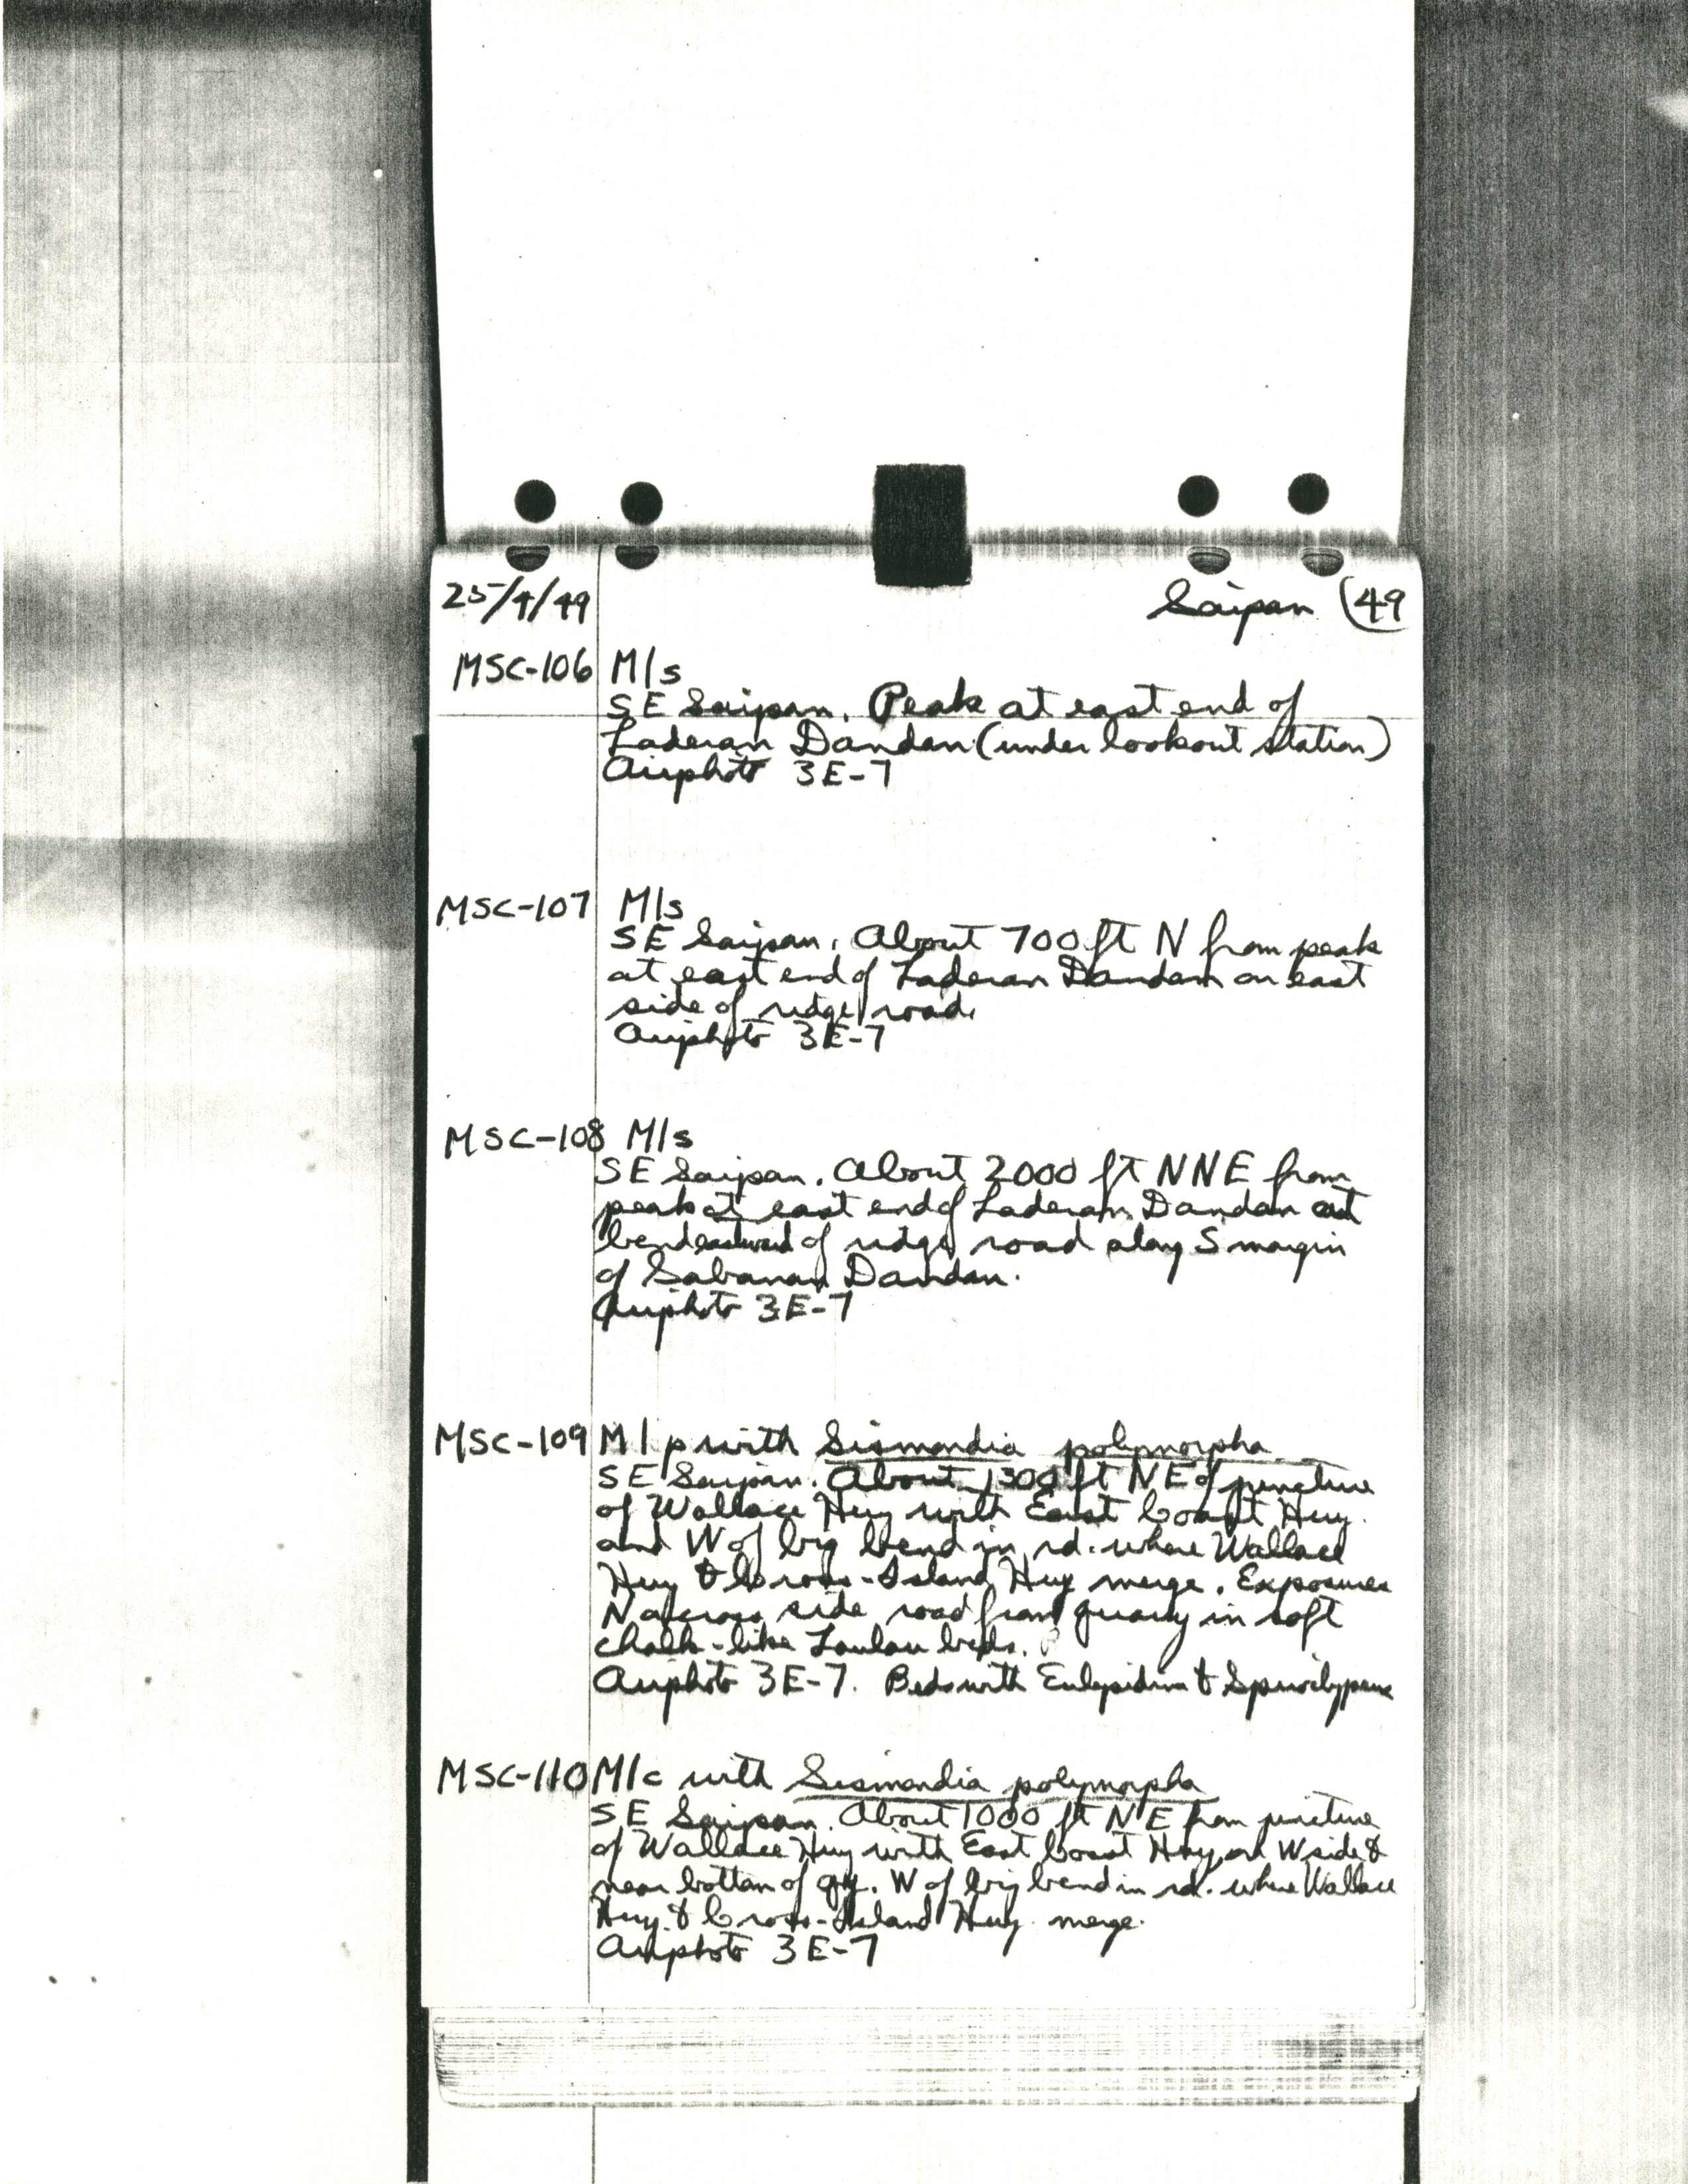 25/4/49 Saipan 49
MSC-106 M/s
SE Saipan. Peak at east end of
Laderan Dandan (under lookout station)
Airphoto 3E-7
MSC-107 M/s
SE Saipan. About 700 ft N from peak
at east end of Laderan Dandan on east
side of ridge road.
Airphoto 3E-7
MSC-108 M/s
SE Saipan. About 2000 ft NNE from
peak at east end of Laderan Dandan at
bend eastward of ridge road along S margin
of Sabanan Dandan.
Airphoto 3E-7
MSC-109 M/p with Sismondia polymorpha
SE Saipan. About 1300 ft NE of juncture
of Wallace Hwy with East Coast Hwy.
and W of big bend in rd. where Wallace
Hwy & Cross-Island Hwy merge. Exposures
N across side road from quarry in soft
chalk-like Laulau beds.
Airphoto 3E-7. Beds with Eulepidina & Spiroclypeus
MSC-110 M/c with Sismondia polymorpha
SE Saipan. About 1000 ft NE from juncture
of Wallace Hwy with East Coast Hwy, on W side &
near bottom of qry. W of big bend in rd. where Wallace
Hwy. & Cross-Island Hwy. merge.
Airphoto 3E-7